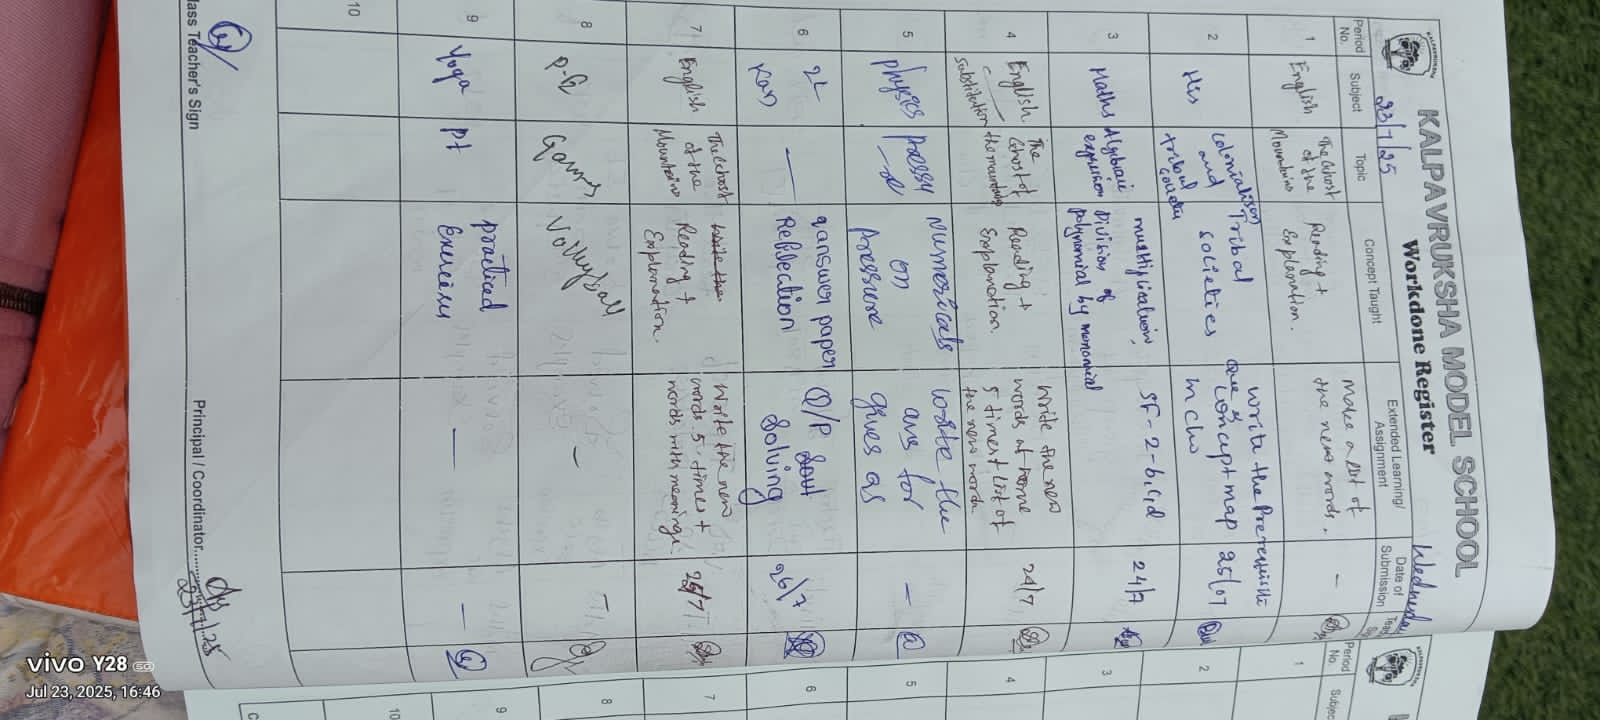 KALPAVRUKSHA MODEL SCHOOL
Workdone Register
23/7/25
Wednesday
Period No.
Subject
Topic
Concept Taught
Extended Learning/ Assignment
Date of Submission
1
English
The Ghost of the Mountains
Reading + Explanation.
Make a list of the new words.
-
2
His
Colonialism and tribal
Tribal societies
write the Prerequisite
Que & concept map in CW
25/07
3
Maths
Algebraic expression
multiplication, Division of polynomial by monomial
SF-2-b,c,d
24/7
4
English
Substitution
The Ghost of the mountains
Reading + Explanation.
Write the new words at home 5 times + list of the new words.
24/7
5
Physics
Numericals on Pressure
write the ans for
-
6
2L Kan
—
qanswer paper Reflecation
Q/P
Solving
26/7
7
English
The Ghost of the Mountains
Reading + Explanation.
Write the new words 5 times + words with meanings.
25/7
8
P.E
Games
Volleyball
-
9
Yoga
PT
practiced Exercises
—
-
10
lass Teacher's Sign
Principal / Coordinator
23/7/25
Period No.
Subject
1
2
3
4
5
6
7
8
9
10
C
vivo Y28 5G
Jul 23, 2025, 16:46